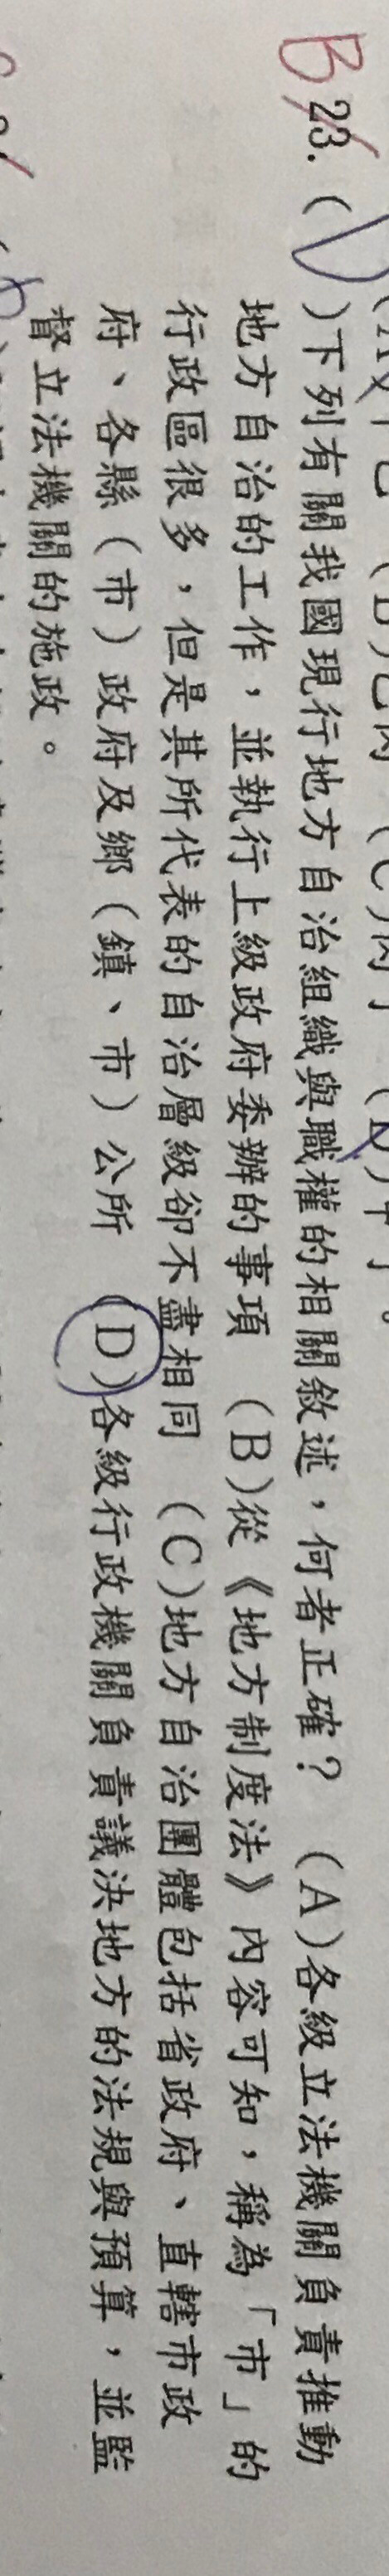 B 23. (D)下列有關我國現行地方自治組織與職權的相關敘述，何者正確？ (A)各級立法機關負責推動
地方自治的工作，並執行上級政府委辦的事項 (B)從《地方制度法》內容可知，稱為「市」的
行政區很多，但是其所代表的自治層級卻不盡相同 (C)地方自治團體包括省政府、直轄市政
府、各縣（市）政府及鄉（鎮、市）公所 (D)各級行政機關負責議決地方的法規與預算，並監
督立法機關的施政。